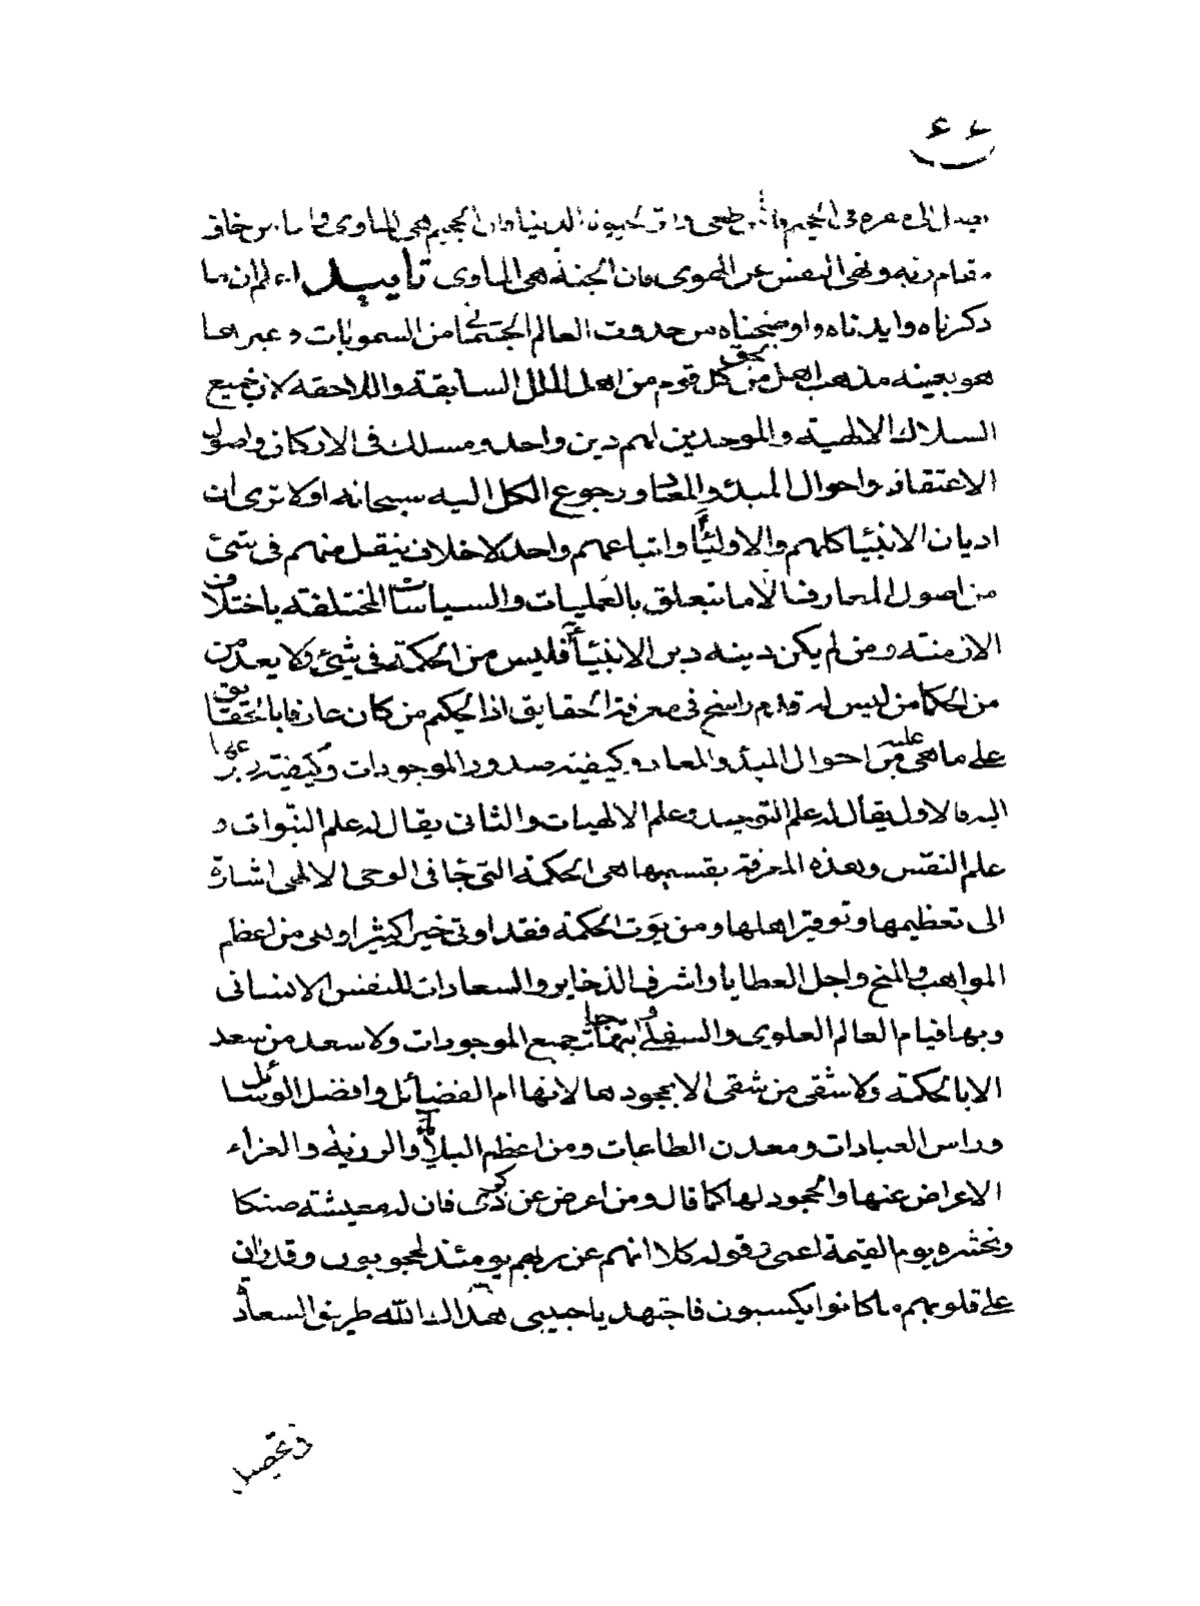 ٤٤
الى مقره فى الجحيم فاما من طغى واثر الحيوة الدنيا فان الجحيم هى الماوى واما من خاف
مقام ربه ونهى النفس عن الهوى فان الجنة هى الماوى تأييد اعلم ان ما
ذكرناه وايدناه واوضحناه من حدوث العالم الجسمانى من السمويات وغيرها
هو بعينه مذهب اهل الحق من كل قوم من اهل الملل السابقة واللاحقة لان جميع
السلاك الالهية والموحدين لهم دين واحد ومسلك فى الاركان واصول
الاعتقاد واحوال المبدء والمعاد ورجوع الكل اليه سبحانه اولا ترى ان
اديان الانبيا كلهم والاوليآ واتباعهم واحد لا خلاف ينقل منهم فى شئ
من اصول المعارف الا ما تتعلق بالعمليات والسياسات المختلفة باختلاف
الازمنة ومن لم يكن دينه دين الانبيآء فليس من الحكمة فى شئ ولا يعد من
من الحكما من ليس له قدم راسخ فى معرفة الحقايق اذ الحكيم من كان عارفا بالحقايق
على ما هى عليه من احوال المبدء والمعاد وكيفية صدور الموجودات وكيفية رجوعها
اليه فالاول يقال له علم التوحيد وعلم الالهيات والثانى يقال له علم النبوات و
علم النفس وهذه المعرفة بقسميها هى الحكمة التى جا فى الوحى الالهى اشارة
الى تعظيمها وتوقير اهلها ومن يؤت الحكمة فقد اوتى خيرا كثيرا وهى من اعظم
المواهب والمنح واجل العطايا واشرف الذخاير والسعادات للنفس الانسانى
وبها قيام العالم العلوى والسفلى وابتهاجات جميع الموجودات ولا سعد من سعد
الا بالحكمة ولا شقى من شقى الا بجحودها لانها ام الفضائل وافضل الوسائل
وراس العبادات ومعدن الطاعات ومن اعظم البلآء والرزية والعزاء
الاعراض عنها والجحود لها كما قال ومن اعرض عن ذكرى فان له معيشة ضنكا
ونحشره يوم القيمة اعمى وقوله كلا انهم عن ربهم يومئذ لمحجوبون وقد ران
على قلوبهم ما كانوا يكسبون فاجتهد يا حبيبى هداك الله طريق السعادة